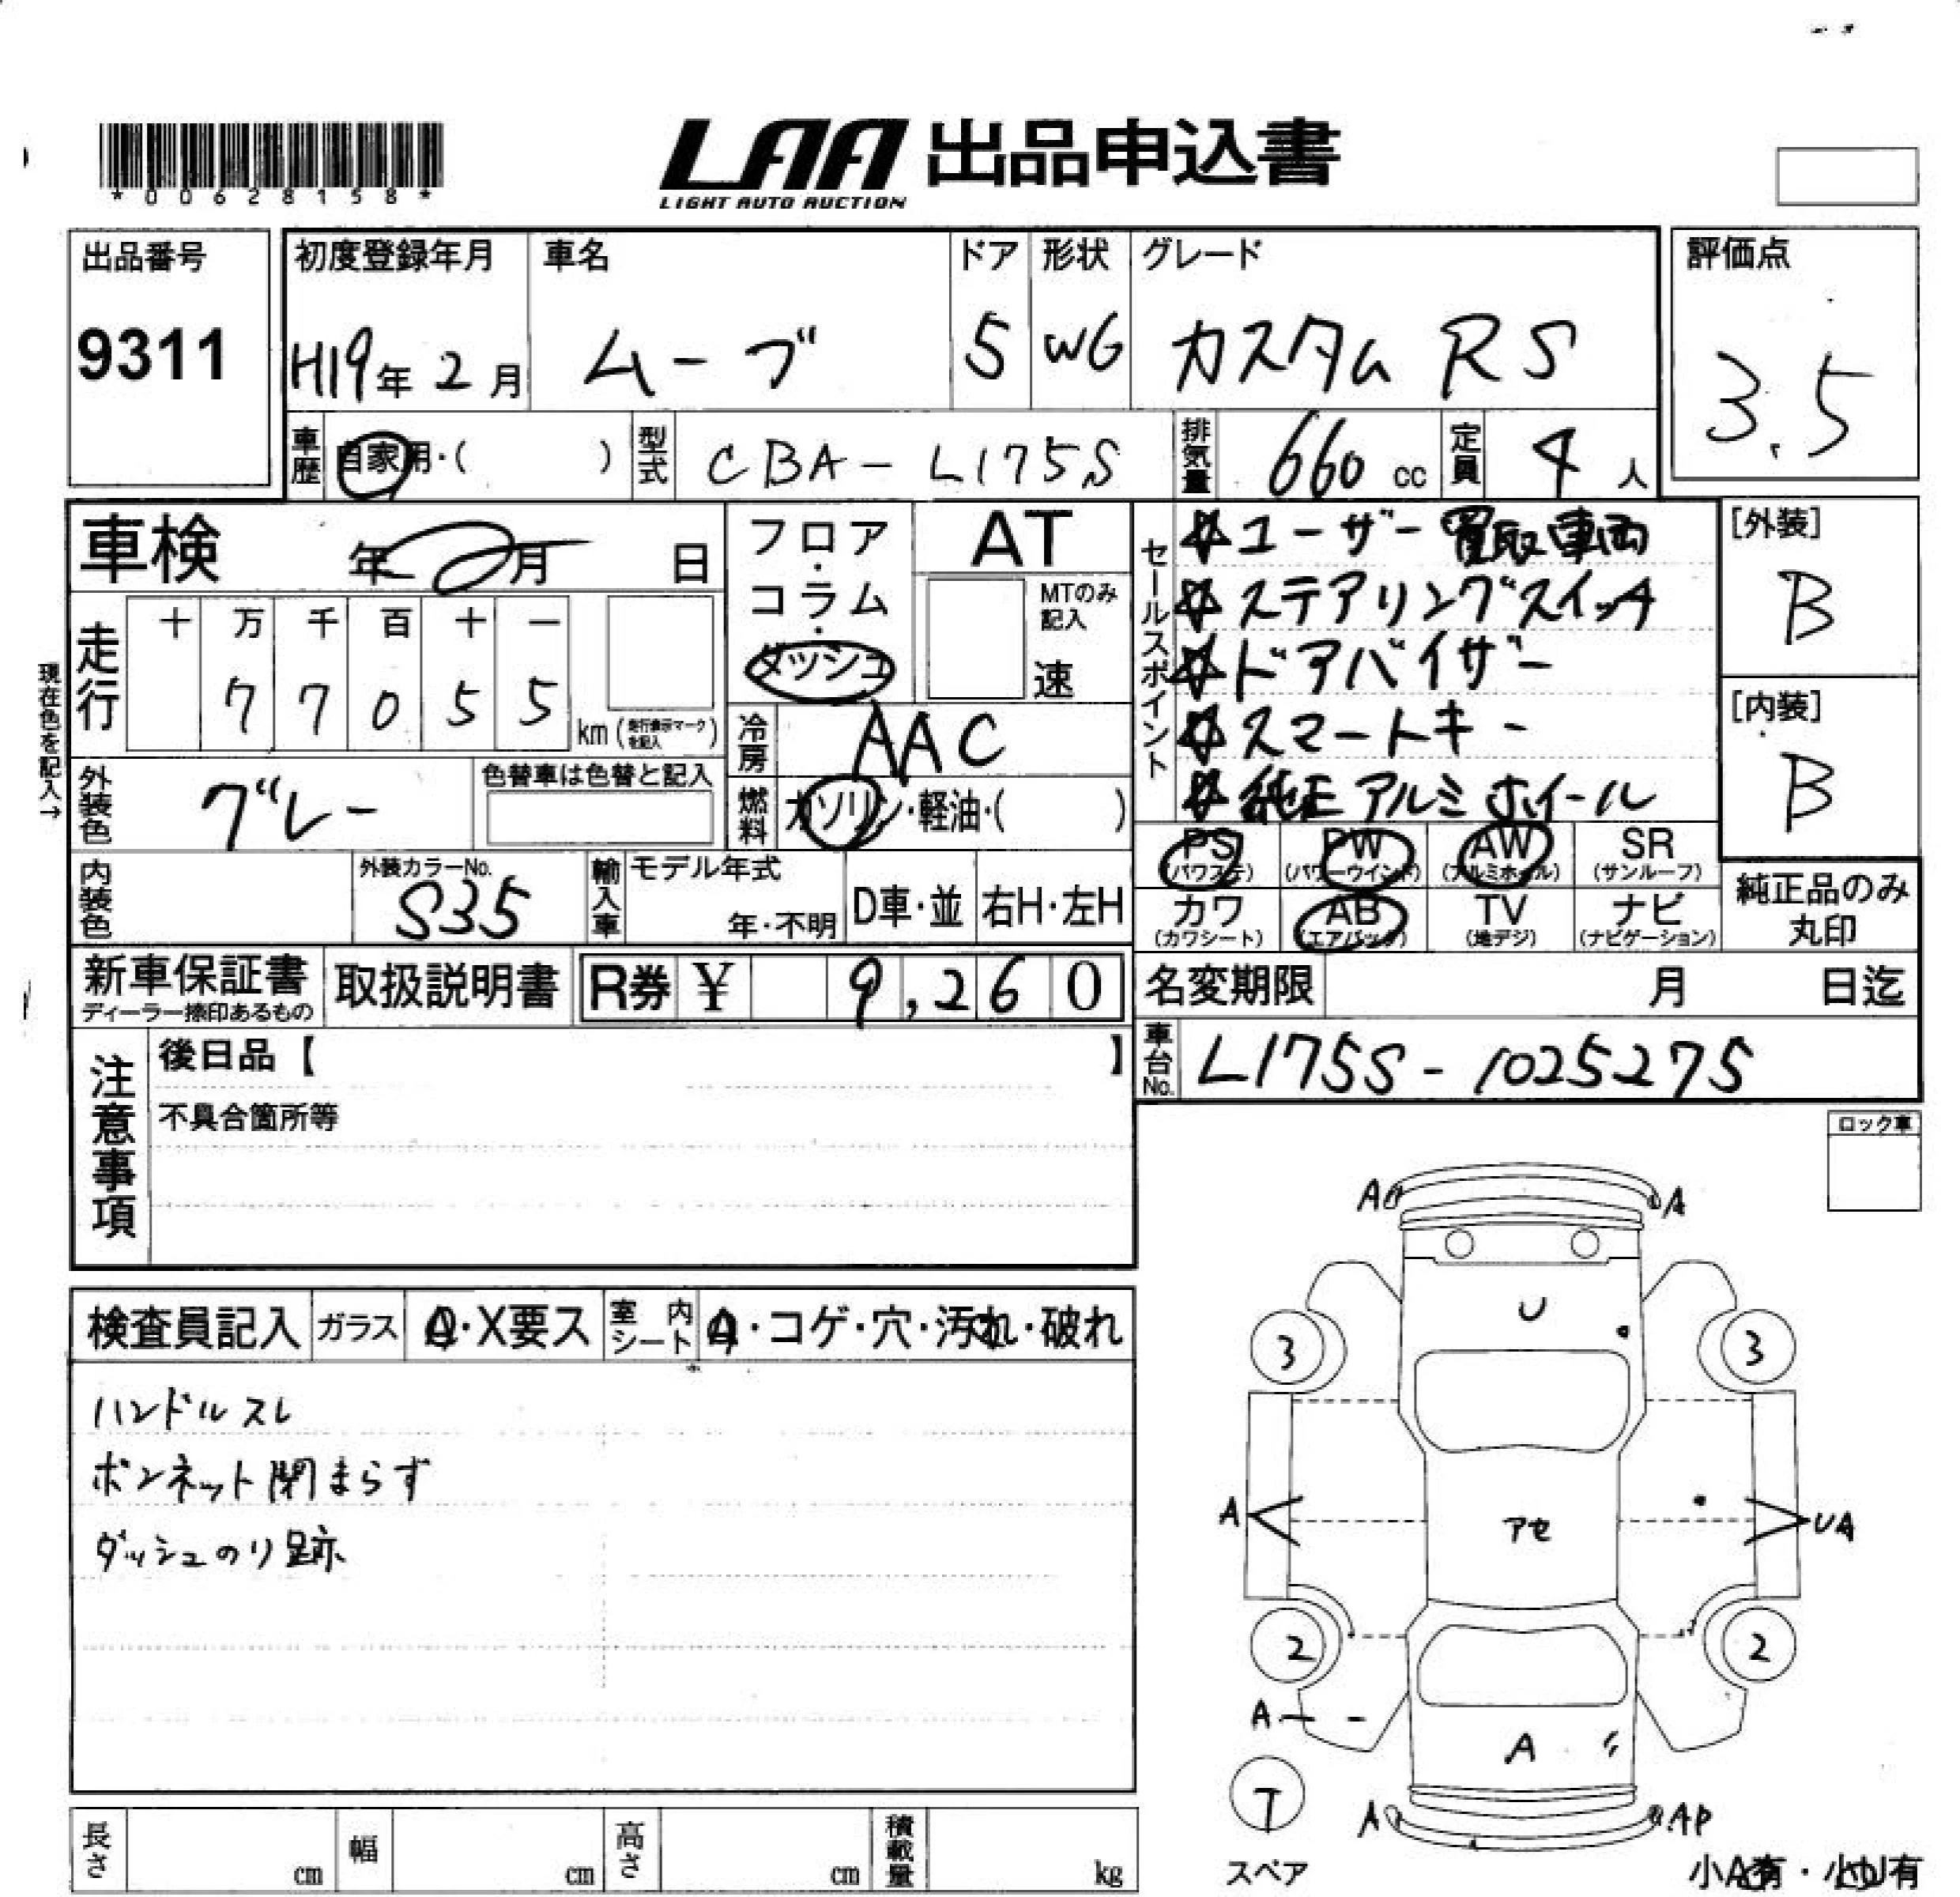 *00628158*
LAA 出品申込書
LIGHT AUTO AUCTION
出品番号
9311
初度登録年月
H19年 2月
車名
ムーブ
ドア
5
形状
WG
グレード
カスタム RS
評価点
3.5
車歴
自家用・( )
型式
CBA-L175S
排気量
660 cc
定員
4 人
車検
年 月 日
フロア・コラム・ダッシュ
AT
MTのみ記入
速
セールスポイント
☆ユーザー買取車両
☆ステアリングスイッチ
☆ドアバイザー
☆スマートキー
☆純正アルミホイール
[外装]
B
[内装]
B
現在色を記入→
走行
十 万 千 百 十 一
7 7 0 5 5
km(走行表示マークを記入)
冷房
AAC
外装色
グレー
色替車は色替と記入
燃料
ガソリン・軽油・( )
内装色
外装カラーNo.
S35
輸入車
モデル年式
年・不明
D車・並
右H・左H
PS (パワステ)
PW (パワーウインド)
AW (アルミホイル)
SR (サンルーフ)
カワ (カワシート)
AB (エアバッグ)
TV (地デジ)
ナビ (ナビゲーション)
純正品のみ丸印
新車保証書
ディーラー捺印あるもの
取扱説明書
R券 ¥ 9,260
名変期限
月 日迄
車台No.
L175S-1025275
注意事項
後日品【 】
不具合箇所等
ロック車
検査員記入
ガラス
A・X要ス
室内シート
・コゲ・穴・汚れ・破れ
ハンドルスレ
ボンネット閉まらず
ダッシュのり跡
A
A
U
3
3
A
アセ
UA
2
2
A
A
T
スペア
A
AP
小A有・小U有
長さ
cm
幅
cm
高さ
cm
積載量
kg